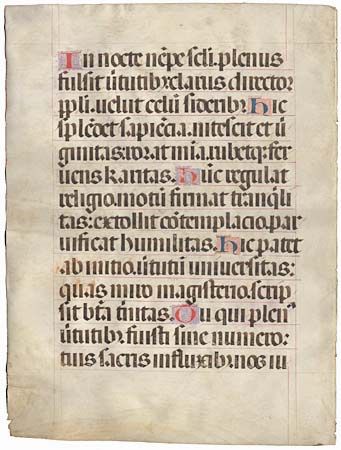 In nocte nẽpe scl̃i . plenus
fulsit v̄tutibꝫ clarus director
ppl̃i . velut celũ sideribꝫ . Hic
splẽdet sapiẽcia . nitescit et v̄
ginitas : rorat mĩa . rubetqꝫ fer
vens karitas . Hũc regulat
religio . motũ firmat tranq̃lli
tas : extollit cõtemplacio . par
vificat humilitas . Hic patet
ab initio . v̄tutũ universitas :
quas miro magisterio . scrip
sit bt̃a tĩnitas . Tu qui plenꝰ
v̄tutibꝫ fuisti sine numero :
tuis sacris influxibꝫ . nos in